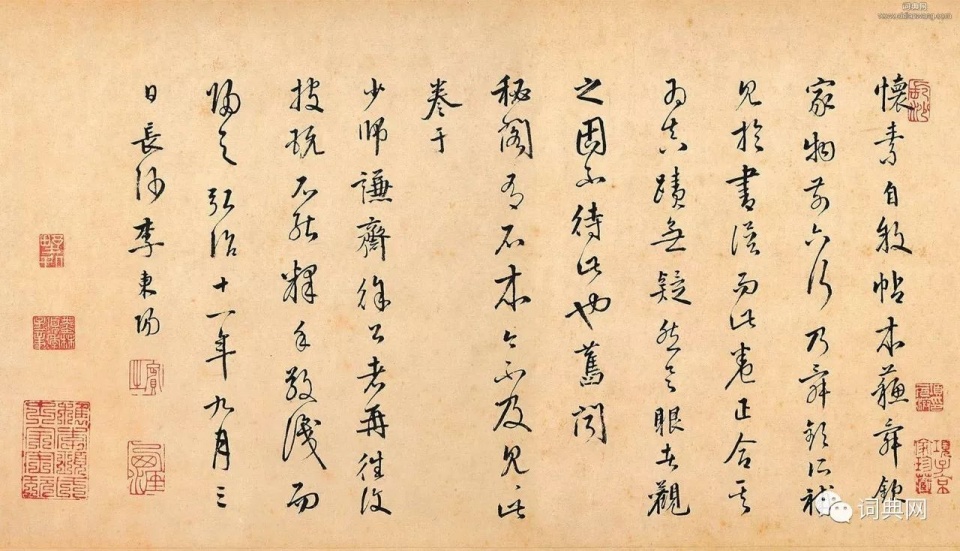 懷素自敘帖本蘇舜欽
家物前六行乃舜欽所補
見於書譜而此卷正合其
為真蹟無疑然具眼者觀
之固不待此也舊聞
秘閣有石本今不及見此
卷于
少師謙齋徐公者再往復
披玩不能釋手敬識而
歸之弘治十一年九月三
日長沙李東陽
項子京家珍藏
词典网
词典网